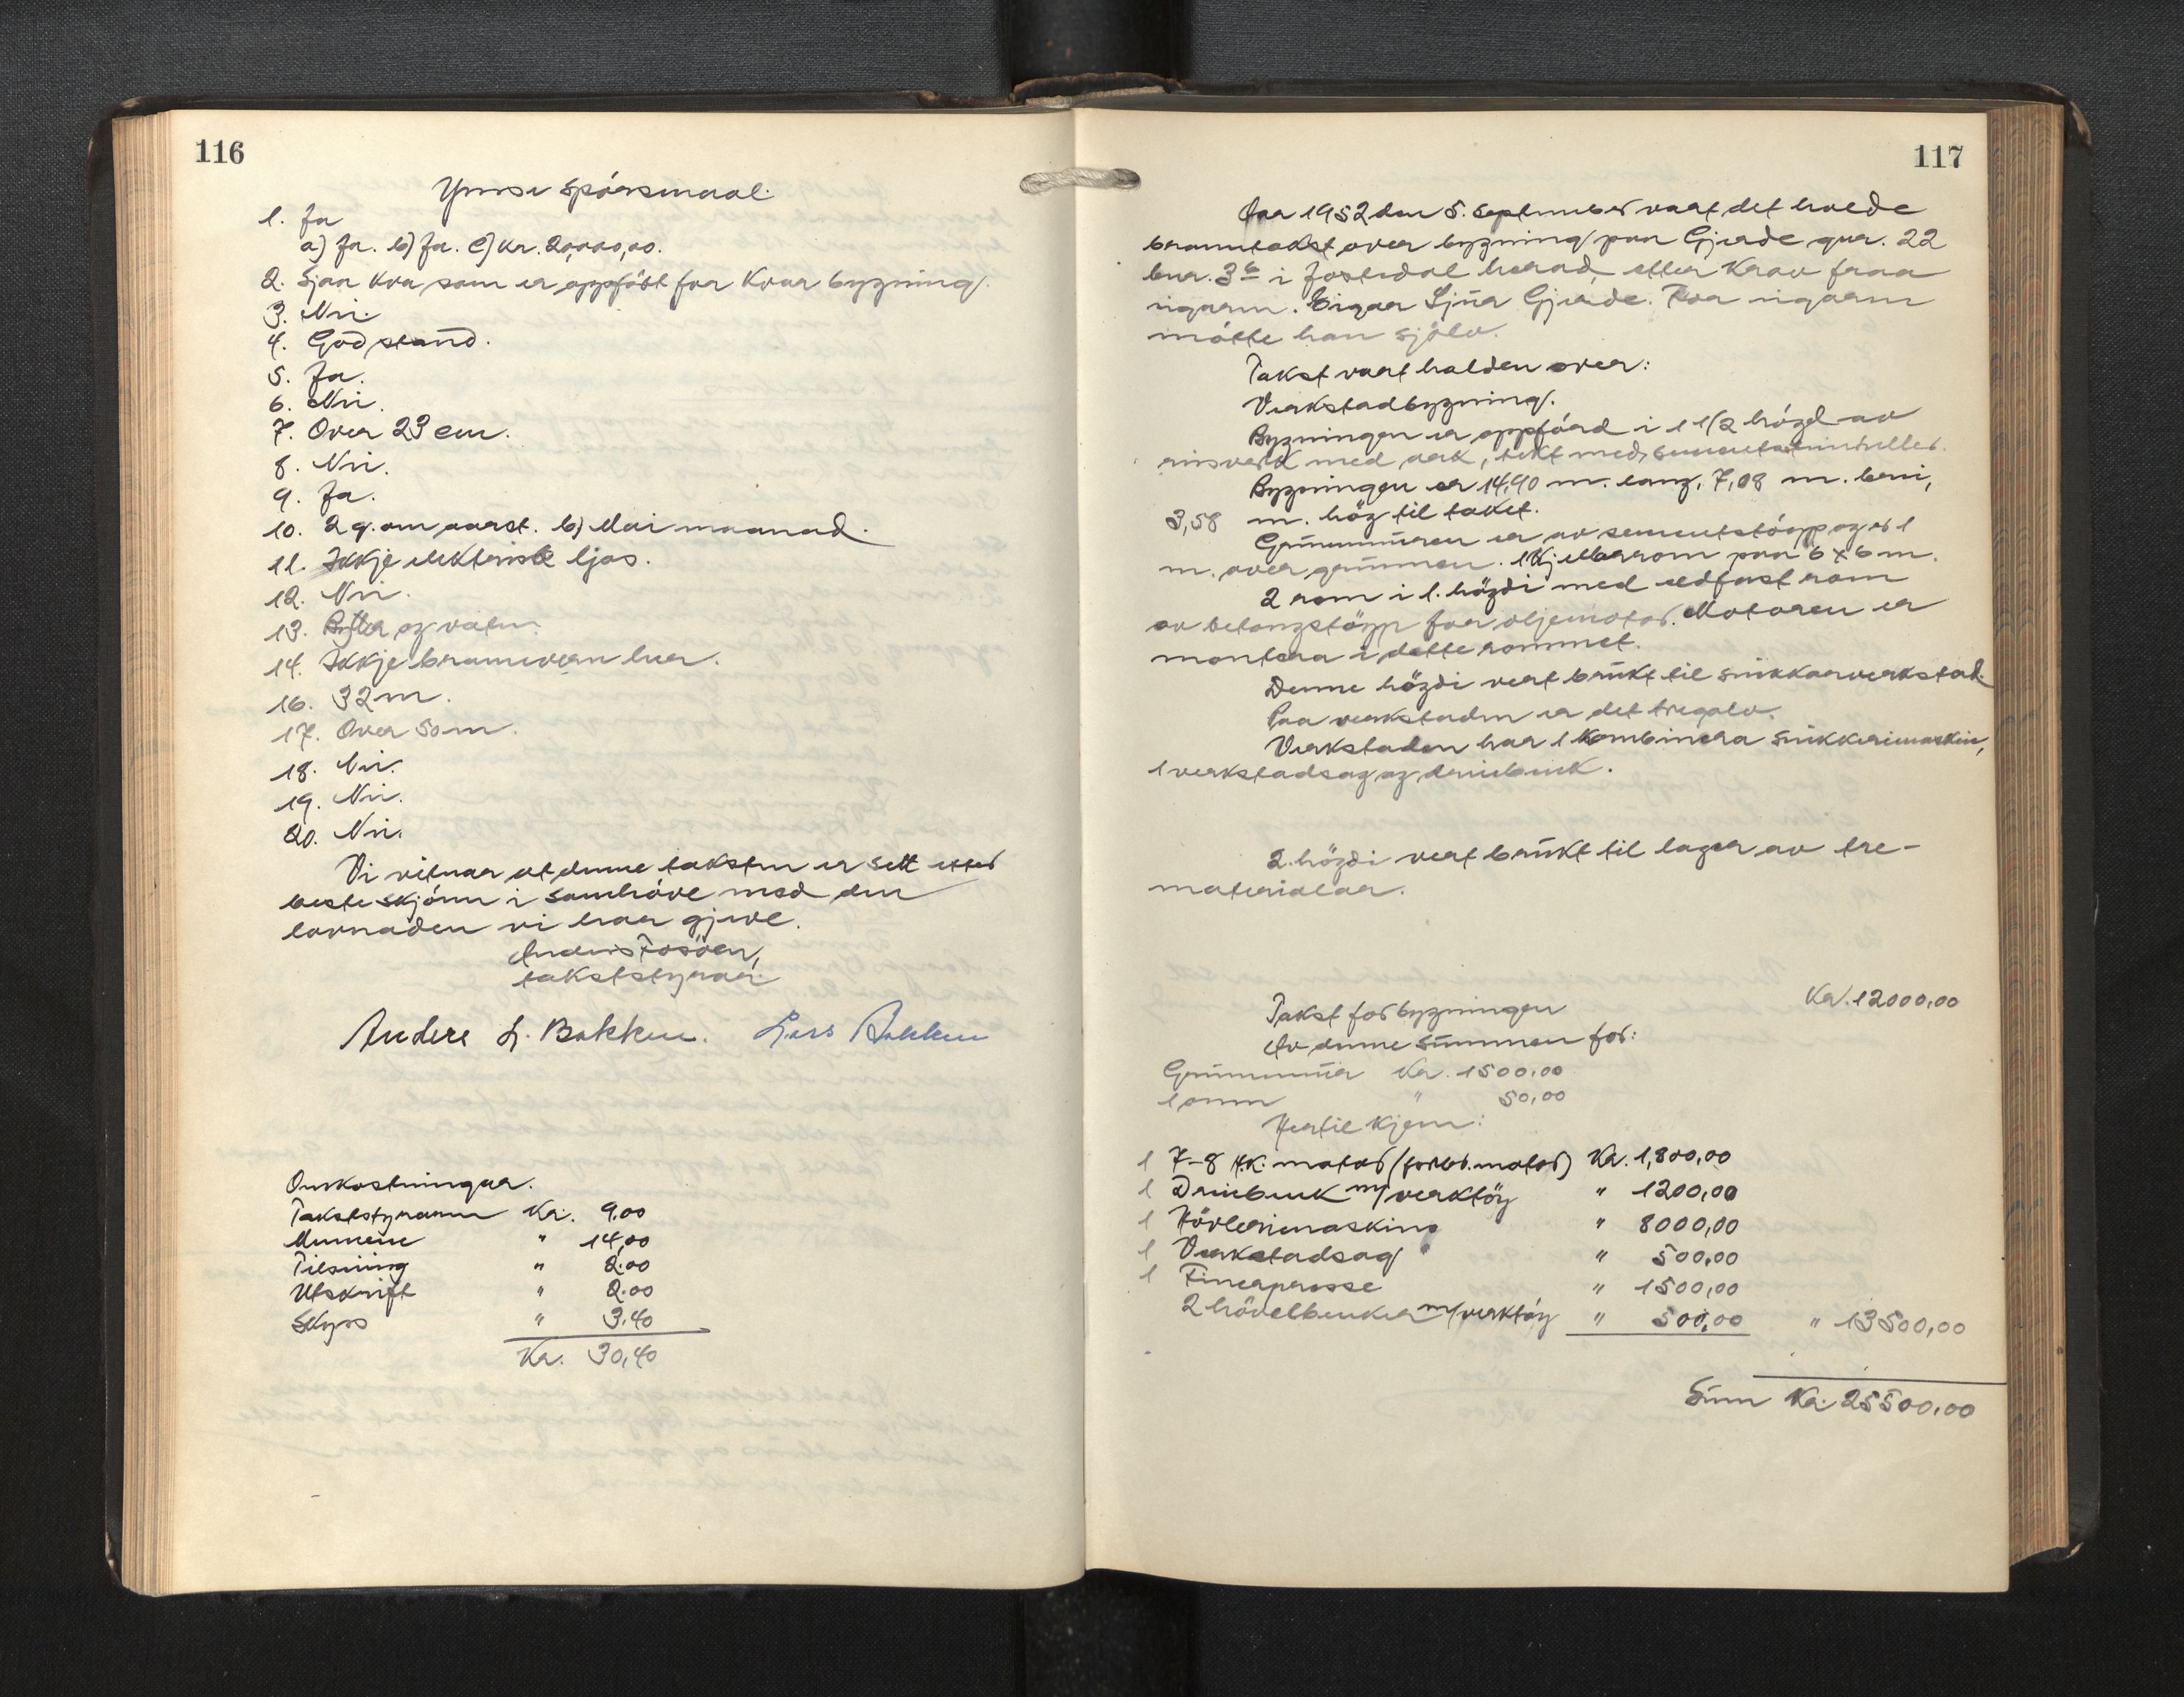 116
Ymse spørsmaal.
1. Ja
a) Ja. b) Ja. c) Kr. 20,000,00.
2. Sjaa kva som er oppført for kvar bygning.
3. Nei.
4. God stand.
5. Ja.
6. Nei.
7. Over 23 cm.
8. Nei.
9. Ja.
10. 2 g. om aaret. b) Mai maanad.
11. Ikkje elektrisk ljos.
12. Nei.
13. Bytter og vatn.
14. Ikkje brannvern her.
16. 32 m.
17. Over 50 m.
18. Nei.
19. Nei.
20. Nei.
Vi vitnar at denne taksten er sett etter
beste skjønn i samhøve med den
lovnaden vi har gjeve.
Anders Fosøen,
takststyrar.
Anders L. Bakken. Lars Bakken
Omkostningar.
Takststyraren Kr. 9,00
Mennene " 14,00
Tilsiing " 2.00
Utskrift " 2.00
Skyss " 3.40
Kr. 30,40
117
Aar 1952 den 5. september vart det halde
branntakst over bygning paa Gjerde gnr. 22
bnr. 3 i Jostedal herad etter krav fraa
eigaren. Eigar Gjerde. For eigaren
møtte han sjølv.
Takst vart halden over:
Verkstadbygning.
Bygningen er oppførd i 1 1/2 høgd av
reisverk med ark, tekt med sementsteinheller.
Bygningen er 14,90 m. lang, 7,08 m. brei,
3,58 m. høg til taket.
Grunnmuren er av sementstøypog er 1
m. over grunnen. 1 kjellarrom paa 6 x 6 m.
2 rom i 1. høgdi med eldfast rom
av betongstøyp for oljemotor. Motoren er
montera i dette rommet.
Denne høgdi vert brukt til snikkarverkstad.
Paa verkstaden er det tregolv.
Verkstaden har 1 kombinera snikkerimaskin,
1 verkstadsag og dreiebenk.
2. høgdi vert brukt til lager av tre-
materialar.
Takst for bygningen Kr. 12000,00
Av denne summen for:
Grunnmur Kr. 1500,00
1 omn " 50,00
Hertil kjem:
1 7-8 H.K. motor (forbr. motor) Kr. 1,800,00
1 Dreiebenk m/verktøy " 1200,00
1 Høvlerimaskine " 8000,00
1 Verkstadsag " " 500,00
1 Finerpresse " 1500,00
2 høvelbenker m/verktøy " 500,00 " 13500,00
Sum Kr. 25500,00